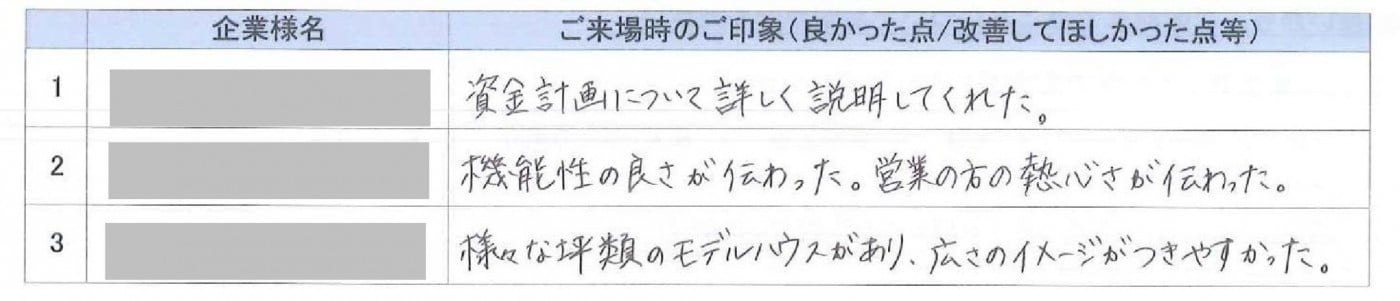 企業様名 ご来場時のご印象(良かった点/改善してほしかった点等)
1 資金計画について詳しく説明してくれた。
2 機能性の良さが伝わった。営業の方の熱心さが伝わった。
3 様々な坪類のモデルハウスがあり、広さのイメージがつきやすかった。